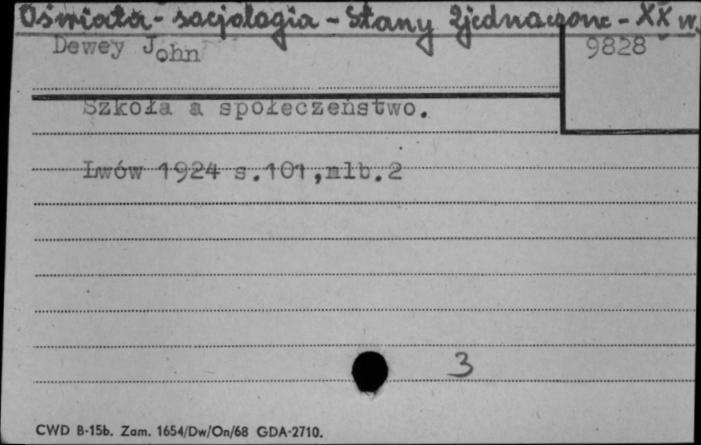 Oświata - socjologia - Stany Zjednoczone - XX w.
Dewey John 9828
Szkoła a społeczeństwo.
Lwów 1924 s.101,nlb.2
3
CWD B-15b. Zam. 1654/Dw/On/68 GDA-2710.